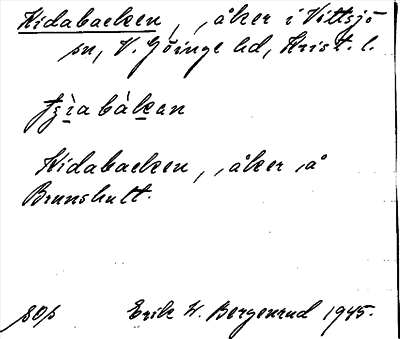 Kidabacken, , åker i Vittsjö
sn, V. Göinge hd, Krist. l.
Kidabacken, , åker, å
Brunshult.
Erik W. Bergenrud 1945.